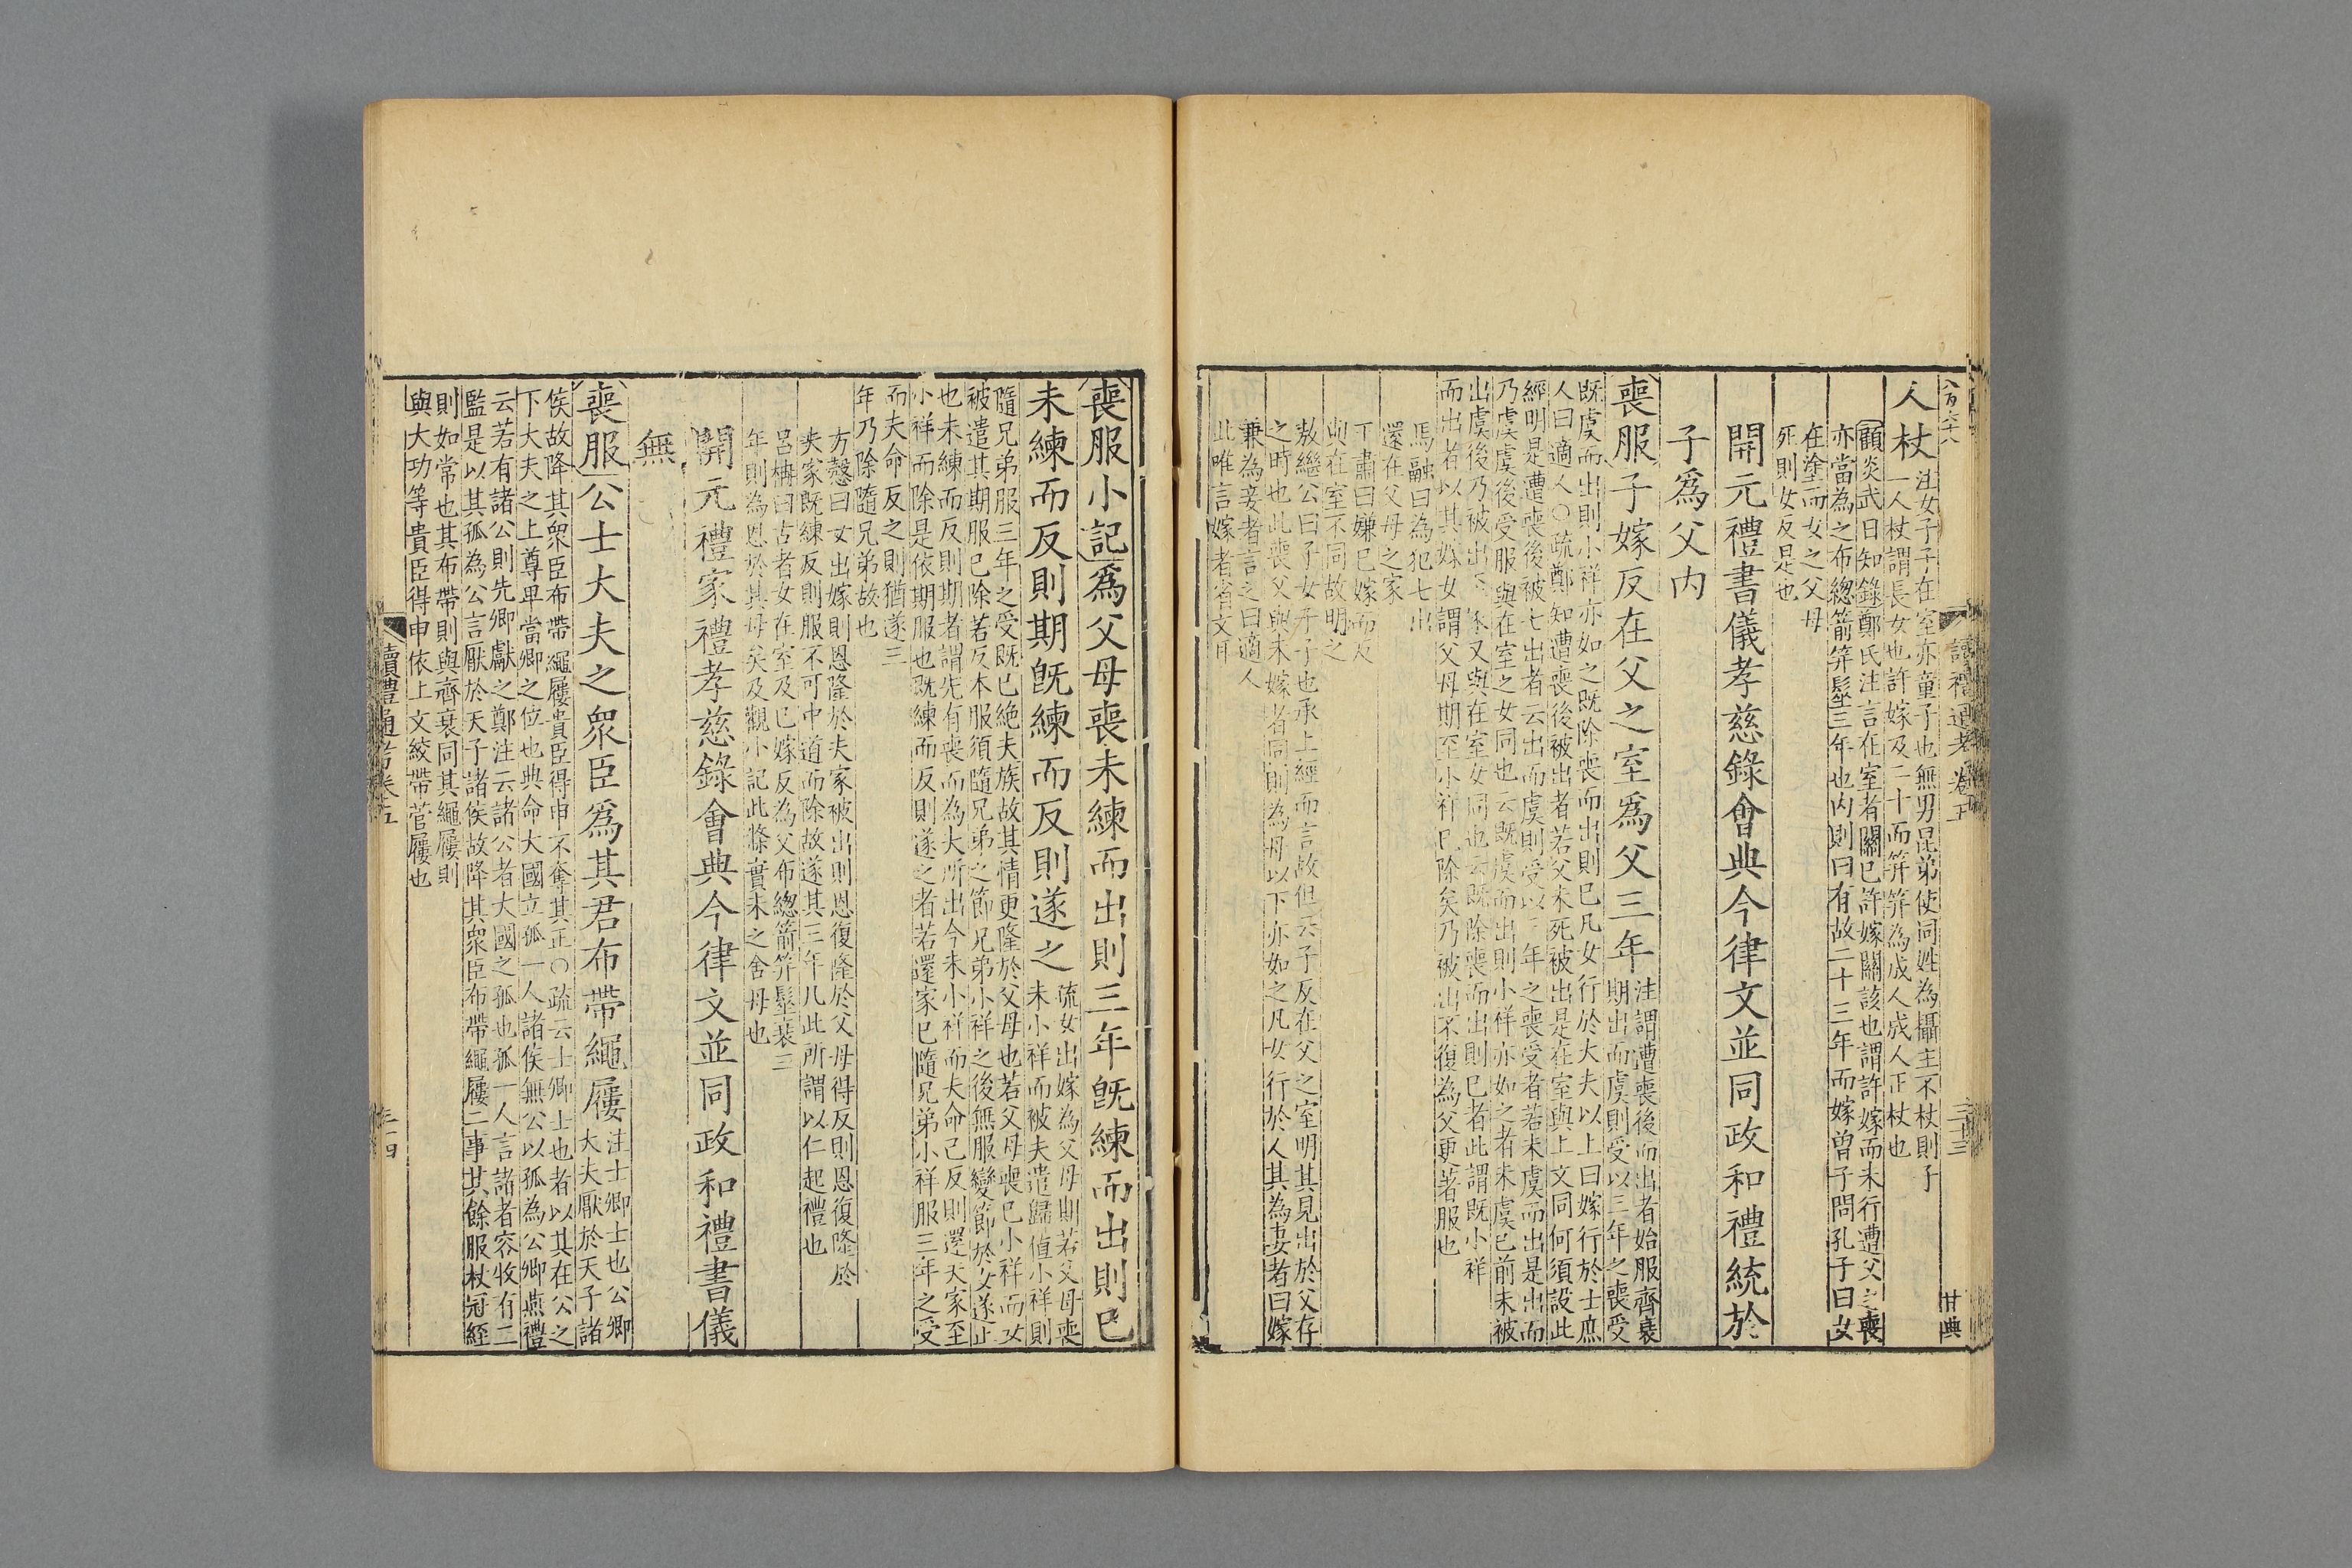 八百六十八
讀禮通考卷五
三十三
廿典
人杖
注女子子在室亦童子也無男昆弟使同姓為攝主不杖則子
一人杖謂長女也許嫁及二十而筓筓為成人成人正杖也
顧炎武日知錄鄭氏注言在室者關已許嫁關該也謂許嫁而未行遭父之喪
亦當為之布總箭筓髽三年也内則曰有故二十三年而嫁曾子問孔子曰女
在塗而女之父母
死則女反是也
開元禮書儀孝慈錄會典今律文並同政和禮統於
子爲父内
喪服子嫁反在父之室爲父三年
注謂遭喪後而出者始服齊衰
期出而虞則受以三年之喪受
既虞而出則小祥亦如之既除喪而出則已凡女行於大夫以上曰嫁行於士庶
人曰適人○疏鄭知遭喪後被出者若父未死被出是在室與上文同何須設此
經明是遭喪後被七出者云出而虞則受以三年之喪受者若未虞而出是出而
乃虞虞後受服與在室之女同也云既虞而出則小祥亦如之者未虞已前未被
出虞後乃被出 又與在室女同也云既除喪而出則已者此謂既小祥
而出者以其嫁女謂父母期至小祥已除矣乃被出不復為父更著服也
馬融曰為犯七出
還在父母之家
王肅曰嫌已嫁而反
與在室不同故明之
敖繼公曰子女子子也承上經而言故但云子反在父之室明其見出於父存
之時也此喪父與未嫁者同則為母以下亦如之凡女行於人其為妻者曰嫁
兼為妾者言之曰適人
此唯言嫁者省文耳
喪服小記爲父母喪未練而出則三年旣練而出則已
未練而反則期旣練而反則遂之
疏女出嫁為父母期若父母喪
未小祥而被夫遣歸值小祥則
隨兄弟服三年之受既已絶夫族故其情更隆於父母也若父母喪已小祥而女
被遣其期服已除若反本服須隨兄弟之節兄弟小祥之後無服變節於女遂止
也未練而反則期者謂先有喪而為夫所出今未小祥而夫命己反則還夫家至
小祥而除是依期服也既練而反則遂之者若還家已隨兄弟小祥服三年之受
而夫命反之則猶遂三
年乃除隨兄弟故也
方慤曰女出嫁則恩隆於夫家被出則恩復隆於父母得反則恩復隆於
夫家既練反則服不可中道而除故遂其三年凡此所謂以仁起禮也
呂柟曰古者女在室及已嫁反為父布總箭筓髽衰三
年則為恩於其母矣及觀小記此條實未之舍母也
開元禮家禮孝慈錄會典今律文並同政和禮書儀
無
喪服公士大夫之眾臣爲其君布帶繩屨
注士卿士也公卿
大夫厭於天子諸
侯故降其眾臣布帶繩屨貴臣得申不奪其正○疏云士卿士也者以其在公之
下大夫之上尊卑當卿之位也典命大國立孤一人諸侯無公以孤為公卿燕禮
云若有諸公則先卿獻之鄭注云諸公者大國之孤也孤一人言諸者容牧有二
監是以其孤為公言厭於天子諸侯故降其眾臣布帶繩屨二事其餘服杖冠絰
則如常也其布帶則與齊衰同其繩屨則
與大功等貴臣得申依上文絞帶菅屨也
讀禮通考卷五
三十四